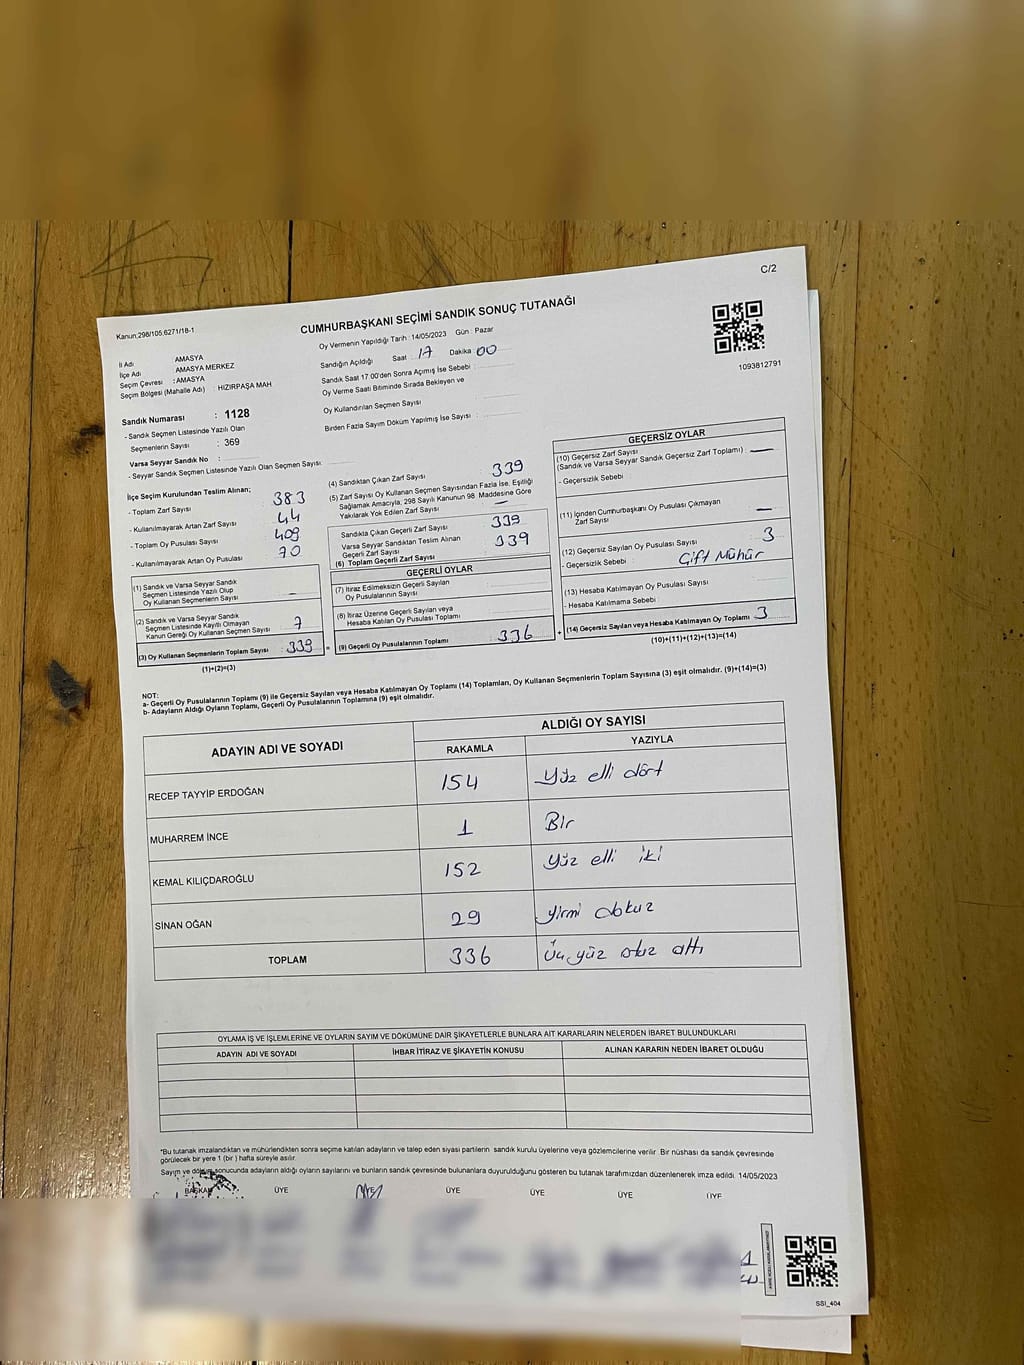 C/2
Kanun:298/105,6271/18-1
CUMHURBAŞKANI SEÇİMİ SANDIK SONUÇ TUTANAĞI
Oy Vermenin Yapıldığı Tarih : 14/05/2023 Gün : Pazar
İl Adı AMASYA
İlçe Adı AMASYA MERKEZ
Seçim Çevresi : AMASYA
Seçim Bölgesi (Mahalle Adı) : HIZIRPAŞA MAH
Sandığın Açıldığı Saat : 17 Dakika : 00
Sandık Saat 17:00'den Sonra Açımış İse Sebebi :
Oy Verme Saati Bitiminde Sırada Bekleyen ve
Oy Kullandırılan Seçmen Sayısı
Birden Fazla Sayım Döküm Yapılmış İse Sayısı
1093812791
Sandık Numarası : 1128
- Sandık Seçmen Listesinde Yazılı Olan
Seçmenlerin Sayısı : 369
Varsa Seyyar Sandık No :
- Seyyar Sandık Seçmen Listesinde Yazılı Olan Seçmen Sayısı:
İlçe Seçim Kurulundan Teslim Alınan;
- Toplam Zarf Sayısı 383
- Kullanılmayarak Artan Zarf Sayısı 44
- Toplam Oy Pusulası Sayısı 409
- Kullanılmayarak Artan Oy Pusulası 70
(1) Sandık ve Varsa Seyyar Sandık
Seçmen Listesinde Yazılı Olup
Oy Kullanan Seçmenlerin Sayısı –
(2) Sandık ve Varsa Seyyar Sandık
Seçmen Listesinde Kayıtlı Olmayan
Kanun Gereği Oy Kullanan Seçmen Sayısı 7
(3) Oy Kullanan Seçmenlerin Toplam Sayısı : 339
(1)+(2)=(3)
(4) Sandıktan Çıkan Zarf Sayısı : 339
(5) Zarf Sayısı Oy Kullanan Seçmen Sayısından Fazla İse, Eşitliği
Sağlamak Amacıyla, 298 Sayılı Kanunun 98. Maddesine Göre
Yakılarak Yok Edilen Zarf Sayısı : —
Sandıkta Çıkan Geçerli Zarf Sayısı 339
Varsa Seyyar Sandıktan Teslim Alınan
Geçerli Zarf Sayısı 339
(6) Toplam Geçerli Zarf Sayısı
GEÇERLİ OYLAR
(7) İtiraz Edilmeksizin Geçerli Sayılan
Oy Pusulalarının Sayısı
(8) İtiraz Üzerine Geçerli Sayılan veya
Hesaba Katılan Oy Pusulası Toplamı
(9) Geçerli Oy Pusulalarının Toplamı 336
GEÇERSİZ OYLAR
(10) Geçersiz Zarf Sayısı
(Sandık ve Varsa Seyyar Sandık Geçersiz Zarf Toplamı) : —
- Geçersizlik Sebebi :
(11) İçinden Cumhurbaşkanı Oy Pusulası Çıkmayan
Zarf Sayısı —
(12) Geçersiz Sayılan Oy Pusulası Sayısı 3
- Geçersizlik Sebebi : Çift Mühür
(13) Hesaba Katılmayan Oy Pusulası Sayısı
- Hesaba Katılmama Sebebi :
(14) Geçersiz Sayılan veya Hesaba Katılmayan Oy Toplamı 3
(10)+(11)+(12)+(13)=(14)
NOT:
a- Geçerli Oy Pusulalarının Toplamı (9) ile Geçersiz Sayılan veya Hesaba Katılmayan Oy Toplamı (14) Toplamları, Oy Kullanan Seçmenlerin Toplam Sayısına (3) eşit olmalıdır. (9)+(14)=(3)
b- Adayların Aldığı Oyların Toplamı, Geçerli Oy Pusulalarının Toplamına (9) eşit olmalıdır.
ADAYIN ADI VE SOYADI ALDIĞI OY SAYISI
RAKAMLA YAZIYLA
RECEP TAYYİP ERDOĞAN 154 Yüz elli dört
MUHARREM İNCE 1 Bir
KEMAL KILIÇDAROĞLU 152 Yüz elli iki
SİNAN OĞAN 29 Yirmi dokuz
TOPLAM 336 Üç yüz otuz altı
OYLAMA İŞ VE İŞLEMLERİNE VE OYLARIN SAYIM VE DÖKÜMÜNE DAİR ŞİKAYETLERLE BUNLARA AİT KARARLARIN NELERDEN İBARET BULUNDUKLARI
ADAYIN ADI VE SOYADI İHBAR İTİRAZ VE ŞİKAYETİN KONUSU ALINAN KARARIN NEDEN İBARET OLDUĞU
*Bu tutanak imzalandıktan ve mühürlendikten sonra seçime katılan adayların ve talep eden siyasi partilerin sandık kurulu üyelerine veya gözlemcilerine verilir. Bir nüshası da sandık çevresinde
görülecek bir yere 1 (bir ) hafta süreyle asılır.
Sayım ve döküm sonucunda adayların aldığı oyların sayılarını ve bunların sandık çevresinde bulunanlara duyurulduğunu gösteren bu tutanak tarafımızdan düzenlenerek imza edildi. 14/05/2023
BAŞKAN ÜYE ÜYE ÜYE ÜYE ÜYE ÜYE
SSI_404